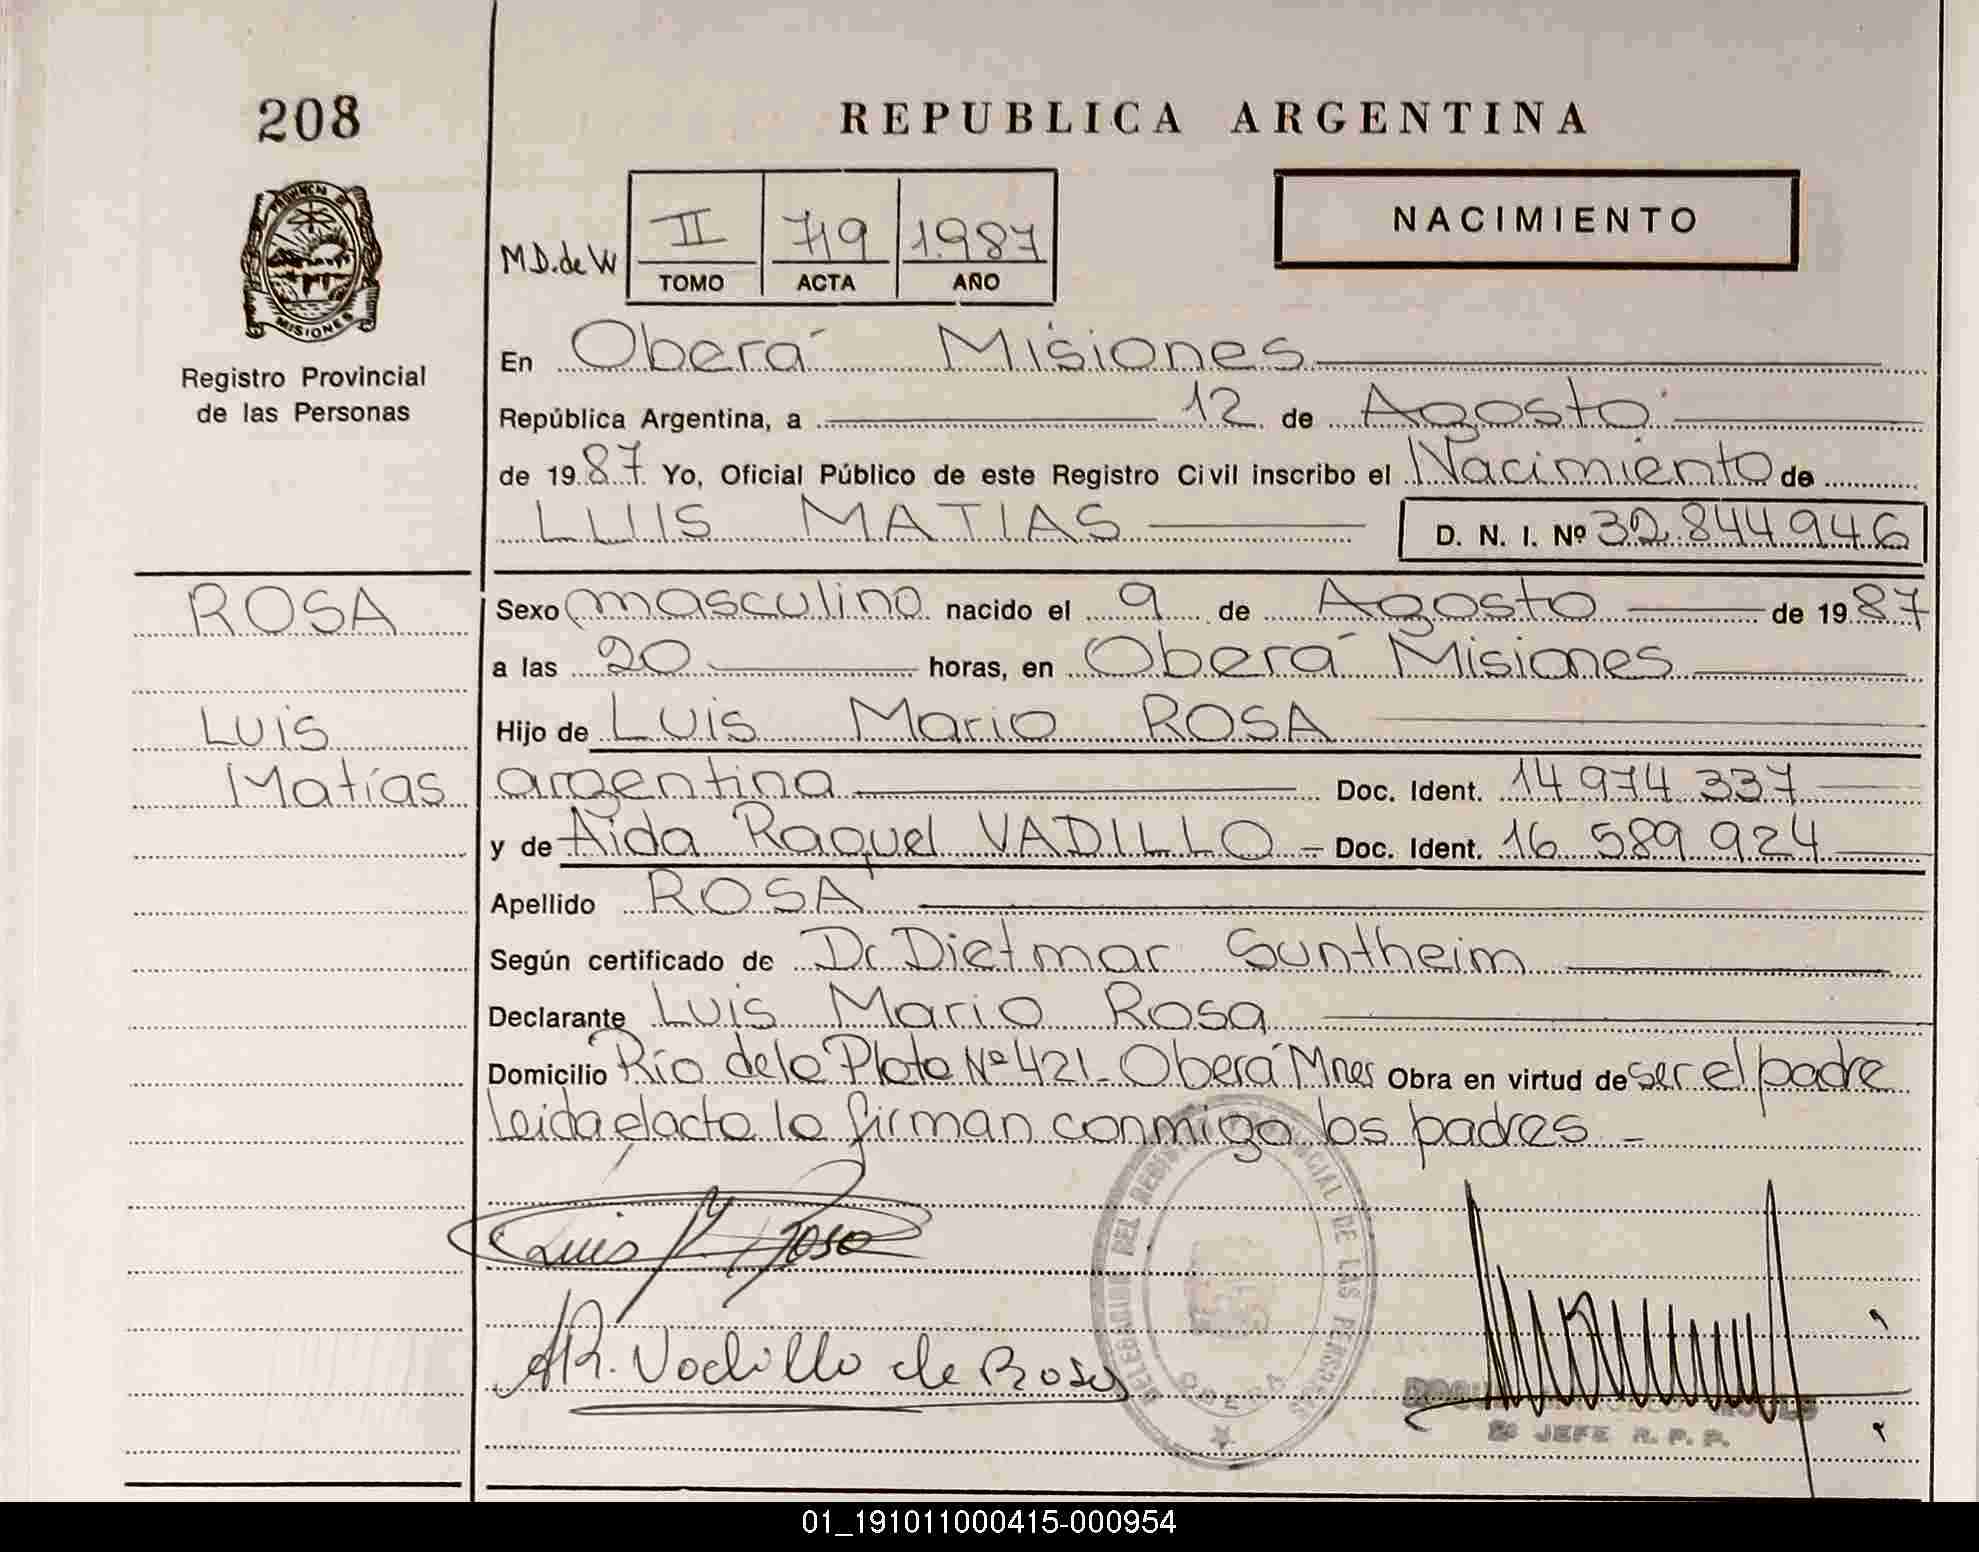 208
REPUBLICA ARGENTINA
NACIMIENTO
M.D. de W
II 719 1.987
TOMO ACTA AÑO
PROVINCIA DE
MISIONES
Registro Provincial
de las Personas
En Oberá Misiones
República Argentina, a 12 de Agosto
de 1987 Yo, Oficial Público de este Registro Civil inscribo el Nacimiento de
LUIS MATIAS D. N. I. Nº 32.844946
ROSA
Luis
Matías
Sexo masculino nacido el 9 de Agosto de 1987
a las 20 horas, en Oberá Misiones
Hijo de Luis Mario ROSA
argentina Doc. Ident. 14 974 337
y de Aida Raquel VADILLO - Doc. Ident. 16 589 924
Apellido ROSA
Según certificado de Dr Dietmar Suntheim
Declarante Luis Mario Rosa
Domicilio Río de la Plata Nº 421 - Oberá Mnes Obra en virtud de ser el padre
leida el acta la firman conmigo los padres -
Luis M. Rosa
A R. Vadillo de Rosa
DELEGACION DEL REGISTRO PROVINCIAL DE LAS PERSONAS
OBERA
2º JEFE R. P. P.
01_191011000415-000954